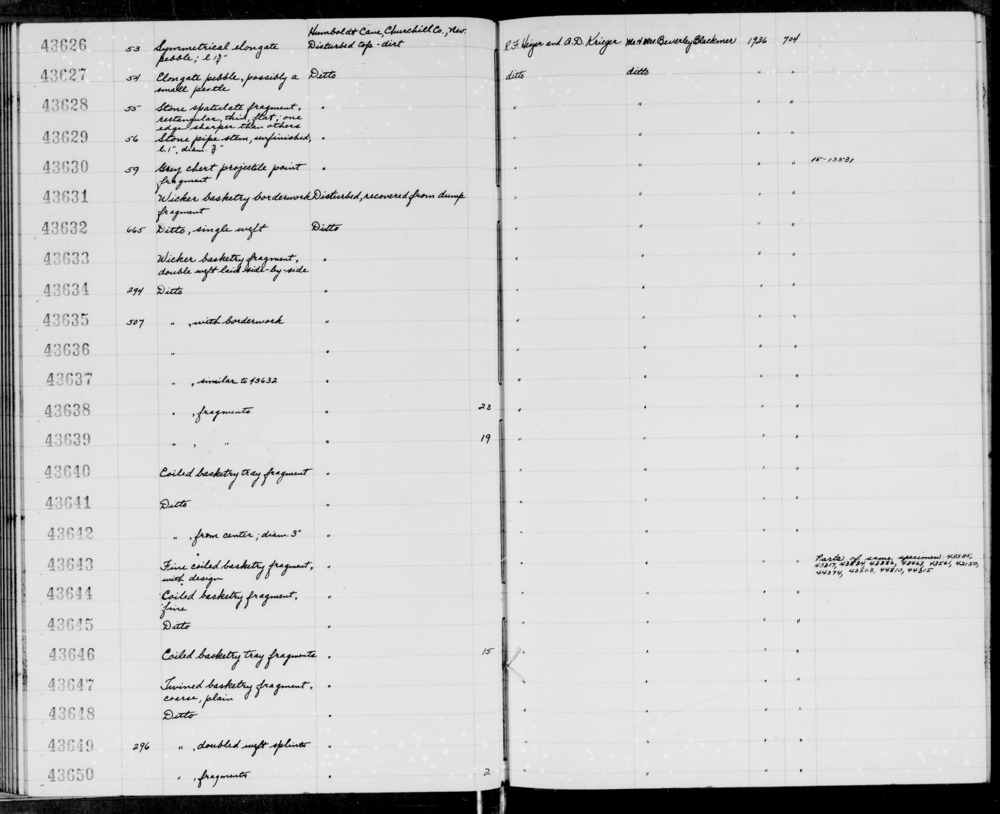 Humboldt Cave, Churchill Co., Nev.
43626 53 Symmetrical elongate Disturbed top-dirt R.F. Heizer and A.D. Krieger Mr & Mrs Beverley Blackmer 1936 704
pebble; l. 1¾"
43627 54 Elongate pebble, possibly a Ditto ditto ditto " "
small pestle
43628 55 Stone spatulate fragment, " " " " "
rectangular, thin, flat; one
edge sharper than others
43629 56 Stone pipe stem, unfinished; " " " " "
l. 1", diam.
43630 59 Grey chert projectile point " " " " " 15-13531
fragment
43631 Wicker basketry borderwork Disturbed, recovered from dump " " " "
fragment
43632 665 Ditto, single weft Ditto " " " "
43633 Wicker basketry fragment, " " " " "
double weft laid side-by-side
43634 294 Ditto " " " " "
43635 507 " , with borderwork " " " " "
43636 " " " " " "
43637 " , similar to 43632 " " " " "
43638 " , fragments " 23 " " " "
43639 " , " " 19 " " " "
43640 Coiled basketry tray fragment " " " " "
43641 Ditto " " " " "
43642 " , from center; diam. 3" " " " " "
43643 Fine coiled basketry fragment, " " " " " Parts of same specimen:
with design
43644 Coiled basketry fragment, " " " " "
fine
43645 Ditto " " " " "
43646 Coiled basketry tray fragments " 15 " " " "
43647 Twined basketry fragment, " " " " "
coarse, plain
43648 Ditto " " " " "
43649 296 " , doubled weft splints " " " " "
43650 " , fragments " 2 " " " "